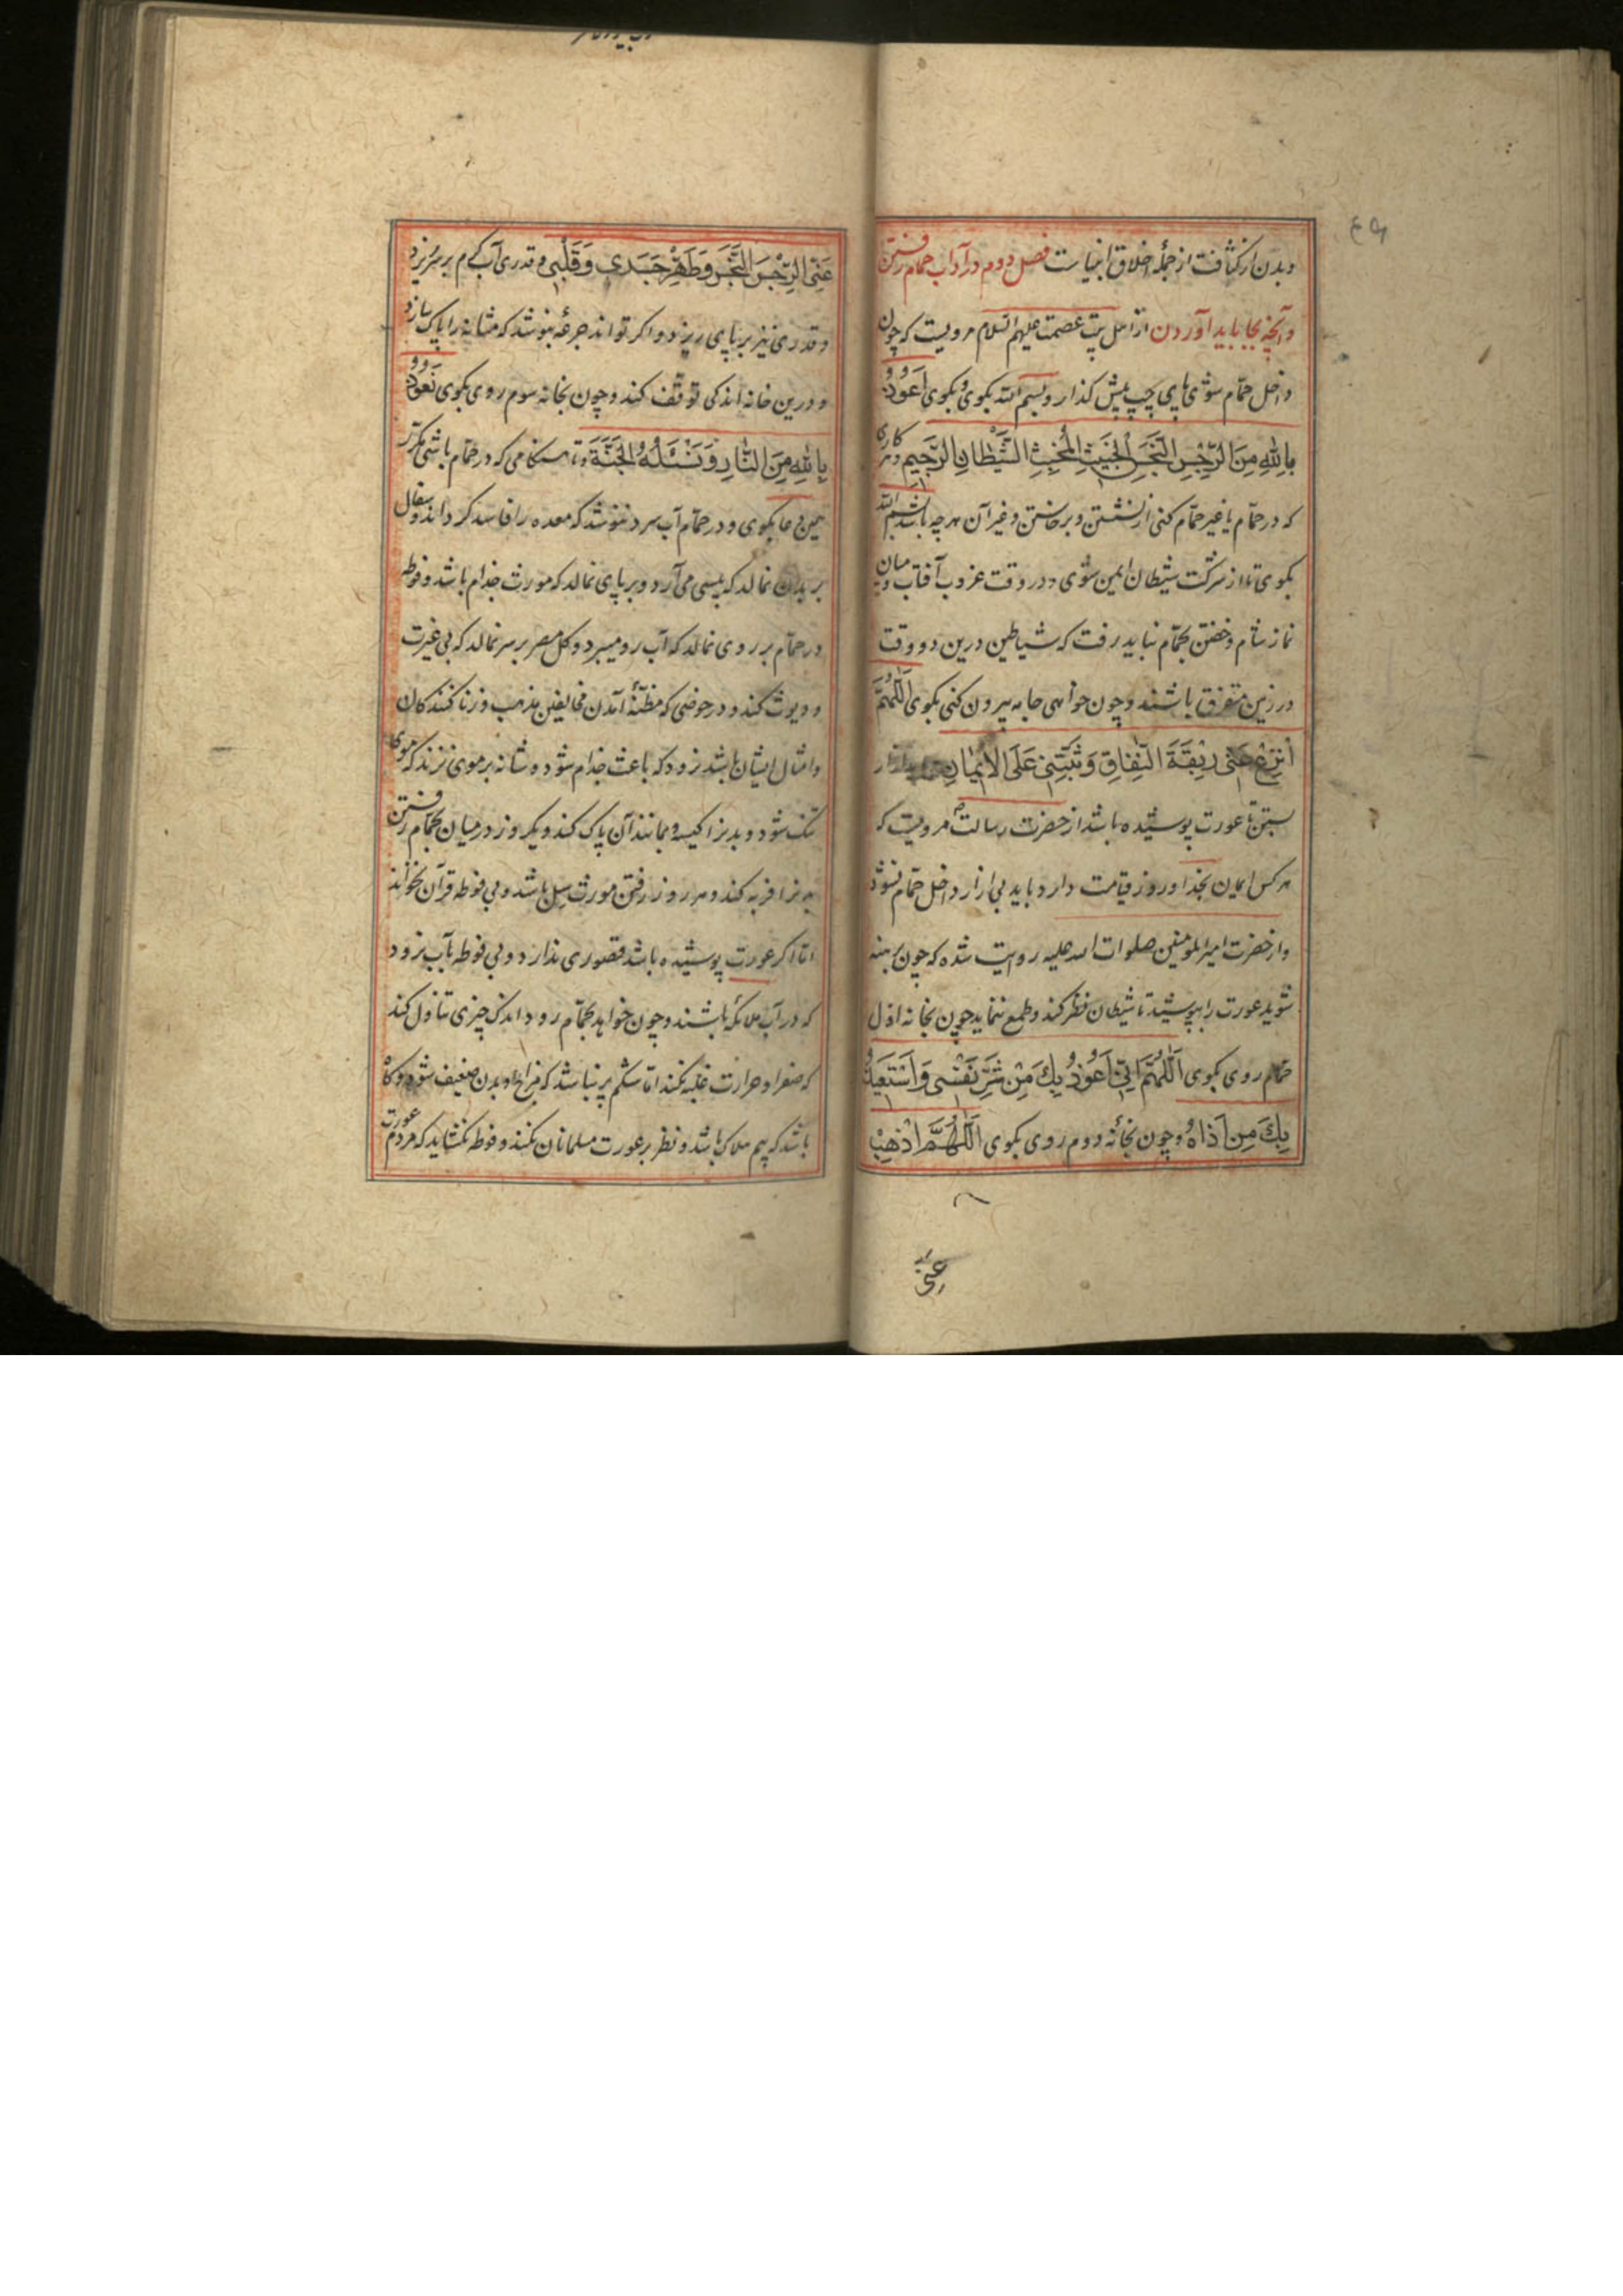 و بدن از کثافت از جمله اخلاق انبیاست فصل دوم در آداب حمام رفتن
و آنچه بجا باید آوردن از اهل بیت عصمت علیهم السلام مرویست که چون
داخل حمّام شوی پای چپ پیش گذار و بسم الله بگوی و بگوی اَعُوذُ
بِاللهِ مِنَ الرِّجْسِ النَّجَسِ الْخَبِيثِ الْمُخْبِثِ الشَّيْطَانِ الرَّجِيمِ و هر کاری
که در حمّام یا غیر حمّام کنی از نشستن و برخاستن و غیر آن هر چه باشد بسم الله
بگوی تا از شرکت شیطان ایمن شوی و در وقت غروب آفتاب و میان
نماز شام و خفتن بحمّام نباید رفت که شیاطین درین دو وقت
در زمین متفرق باشند و چون خواهی جامه بیرون کنی بگوی اَللّٰهُمَّ
اَنْزِعْ عَنّى رِبْقَةَ النِّفَاقِ وَثَبِّتْنِى عَلَى الْاِيمَانِ
بستن تا عورت پوشیده باشد از حضرت رسالت ص مرویست که
هر کس ایمان بخدا و روز قیامت دارد باید بی ازار داخل حمّام نشود
و از حضرت امیر المومنین صلوات الله علیه روایت شده که چون برهنه
شوید عورت را بپوشید تا شیطان نظر نکند و طمع ننماید چون بخانه اوّل
حمّام روی بگوی اَللّٰهُمَّ اِنّى اَعُوذُ بِكَ مِنْ شَرِّ نَفْسِى وَ اَسْتَعِيذُ
بِكَ مِنْ اَذَاهُ و چون بخانه دوم روی بگوی اَللّٰهُمَّ اَذْهِبْ
عنی
عَنِّى الرِّجْسَ النَّجَسَ وَ طَهِّرْ جَسَدِى وَ قَلْبِى و قدری آب گرم بر سر ریزد
و قدری نیز بر پای ریزد و اگر تواند جرعه بنوشد که مثانه را پاک سازد
و درین خانه اندکی توقف کند و چون بخانه سوم روی بگوی نَعُوذُ
بِاللهِ مِنَ النَّارِ وَ نَسْئَلُهُ الْجَنَّةَ و تا هنگامی که در حمّام باشی مکرّر
همین دعا بگوی و در حمّام آب سرد ننوشد که معده را فاسد گرداند و سفال
بر بدن نمالد که پیسی می آرد و بر پای نمالد که مورث جذام باشد و فوطه
در حمّام بر روی نمالد که آب رو میبرد و گل مصر بر سر نمالد که بی غیرت
و دیوث کند و در حوضی که مظنّهٔ آمدن مخالفین مذهب و زنا کنندکان
و امثال ایشان باشد نرود که باعث جذام شود و شانه بر موی نزند که موی
تنک شود و بدنرا کیسه و مانند آن پاک کند و یکروز در میان بحمّام رفتن
بدنرا فربه کند و هر روز رفتن مورث سل باشد و بی فوطه قرآن نخواند
امّا اگر عورت پوشیده باشد قصوری ندارد و بی فوطه بآب نرود
که در آب ملائکه باشند و چون خواهد بحمّام رود اندک چیزی تناول کند
که صفرا و حرارت غلبه نکند امّا شکم پر نباشد که مزاج و بدن ضعیف شود و گاه
باشد که بیم هلاک باشد و نظر بر عورت مسلمانان نکند و فوطه نگشاید که مردم عورت